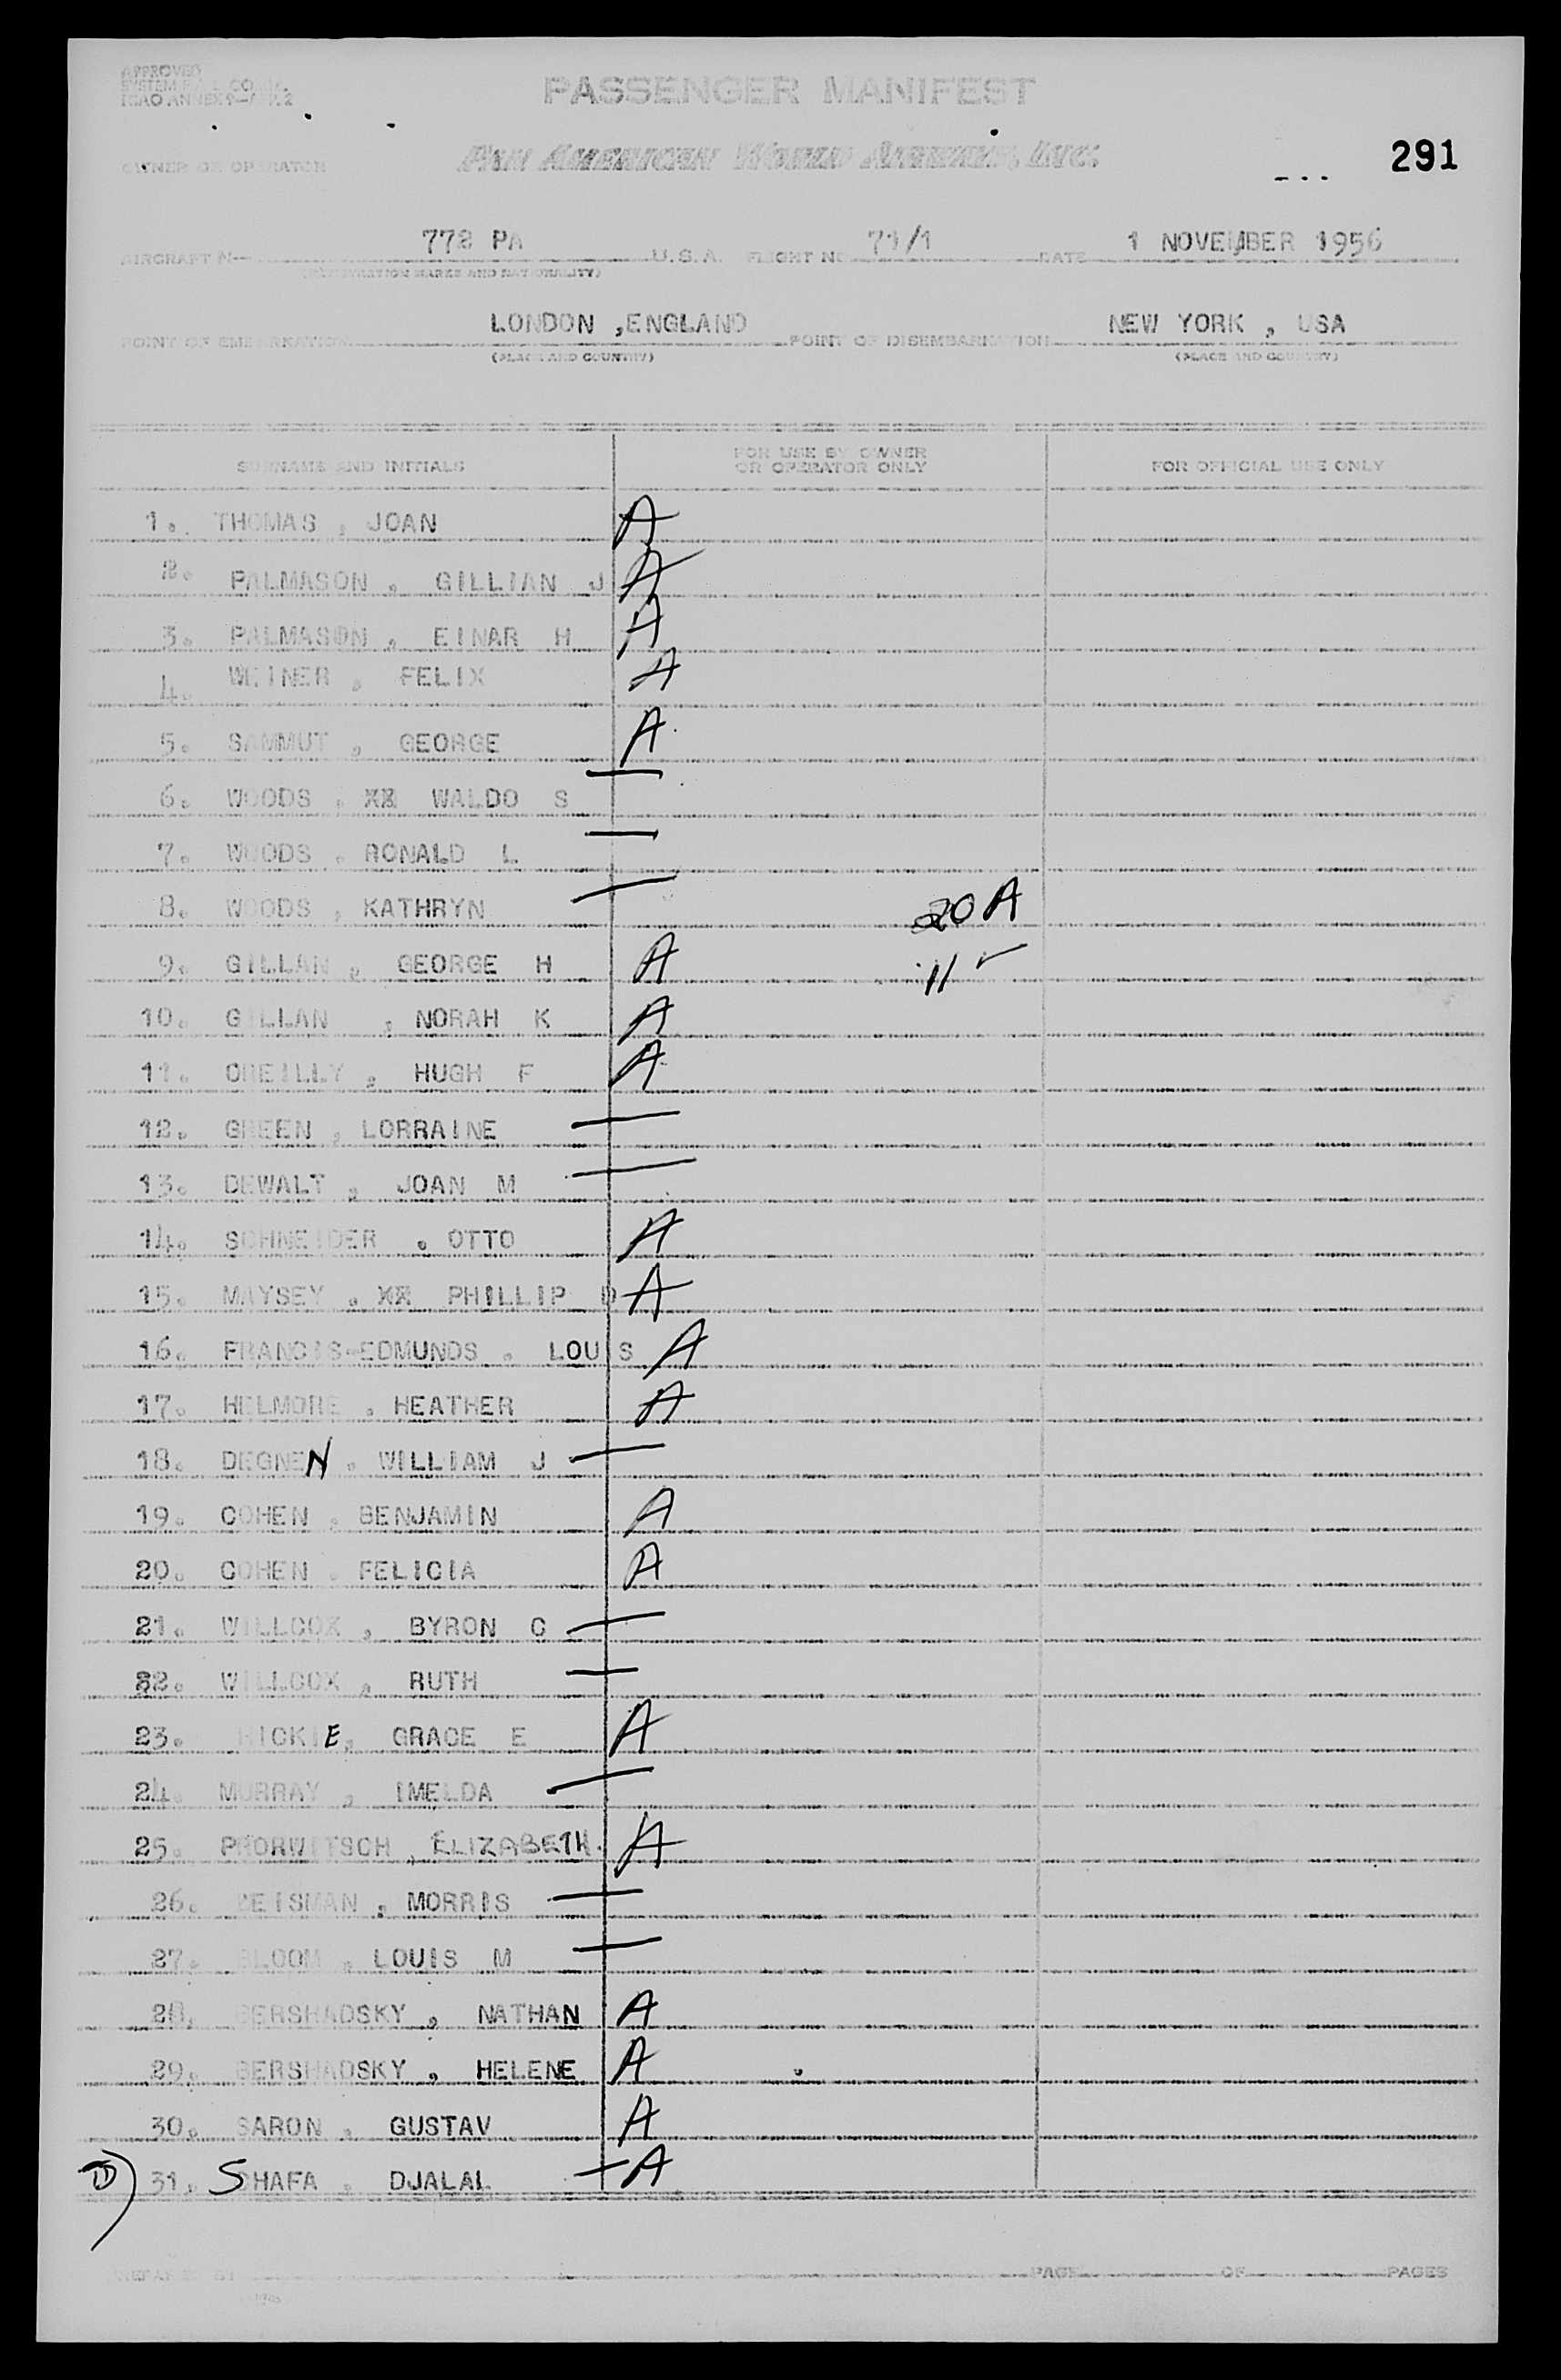 APPROVED
ICAO ANNEX 9
PASSENGER MANIFEST
OWNER OR OPERATOR PAN AMERICAN WORLD AIRWAYS, INC.
291
AIRCRAFT N- 778 PA U.S.A. FLIGHT NO 71/1 DATE 1 NOVEMBER 1956
POINT OF EMBARKATION LONDON ,ENGLAND POINT OF DISEMBARKATION NEW YORK , USA
(PLACE AND COUNTRY) (PLACE AND COUNTRY)
SURNAME AND INITIALS FOR USE BY OWNER OR OPERATOR ONLY FOR OFFICIAL USE ONLY
1. THOMAS , JOAN A
2. PALMASON , GILLIAN J A
3. PALMASON , EINAR H A
4. WEINER , FELIX A
5. SAMMUT , GEORGE A
6. WOODS , XX WALDO S —
7. WOODS , RONALD L —
8. WOODS , KATHRYN — 20 A
9. GILLAN , GEORGE H A 11 ✓
10. GILLAN , NORAH K A
11. OREILLY , HUGH F A
12. GREEN , LORRAINE —
13. DEWALT , JOAN M —
14. SCHNEIDER , OTTO A
15. MAYSEY , XX PHILLIP D A
16. FRANCIS-EDMUNDS , LOUIS A
17. HELMORE , HEATHER A
18. DEGNEN , WILLIAM J —
19. COHEN , BENJAMIN A
20. COHEN , FELICIA A
21. WILLCOX , BYRON C —
22. WILLCOX , RUTH —
23. HICKIE, GRACE E A
24. MURRAY , IMELDA —
25. PRORWITSCH , ELIZABETH. A
26. WEISMAN , MORRIS —
27. BLOOM , LOUIS M —
28. BERSHADSKY , NATHAN A
29. BERSHADSKY , HELENE A
30. SARON , GUSTAV A
31. SHAFA , DJALAL — A
PAGE OF PAGES